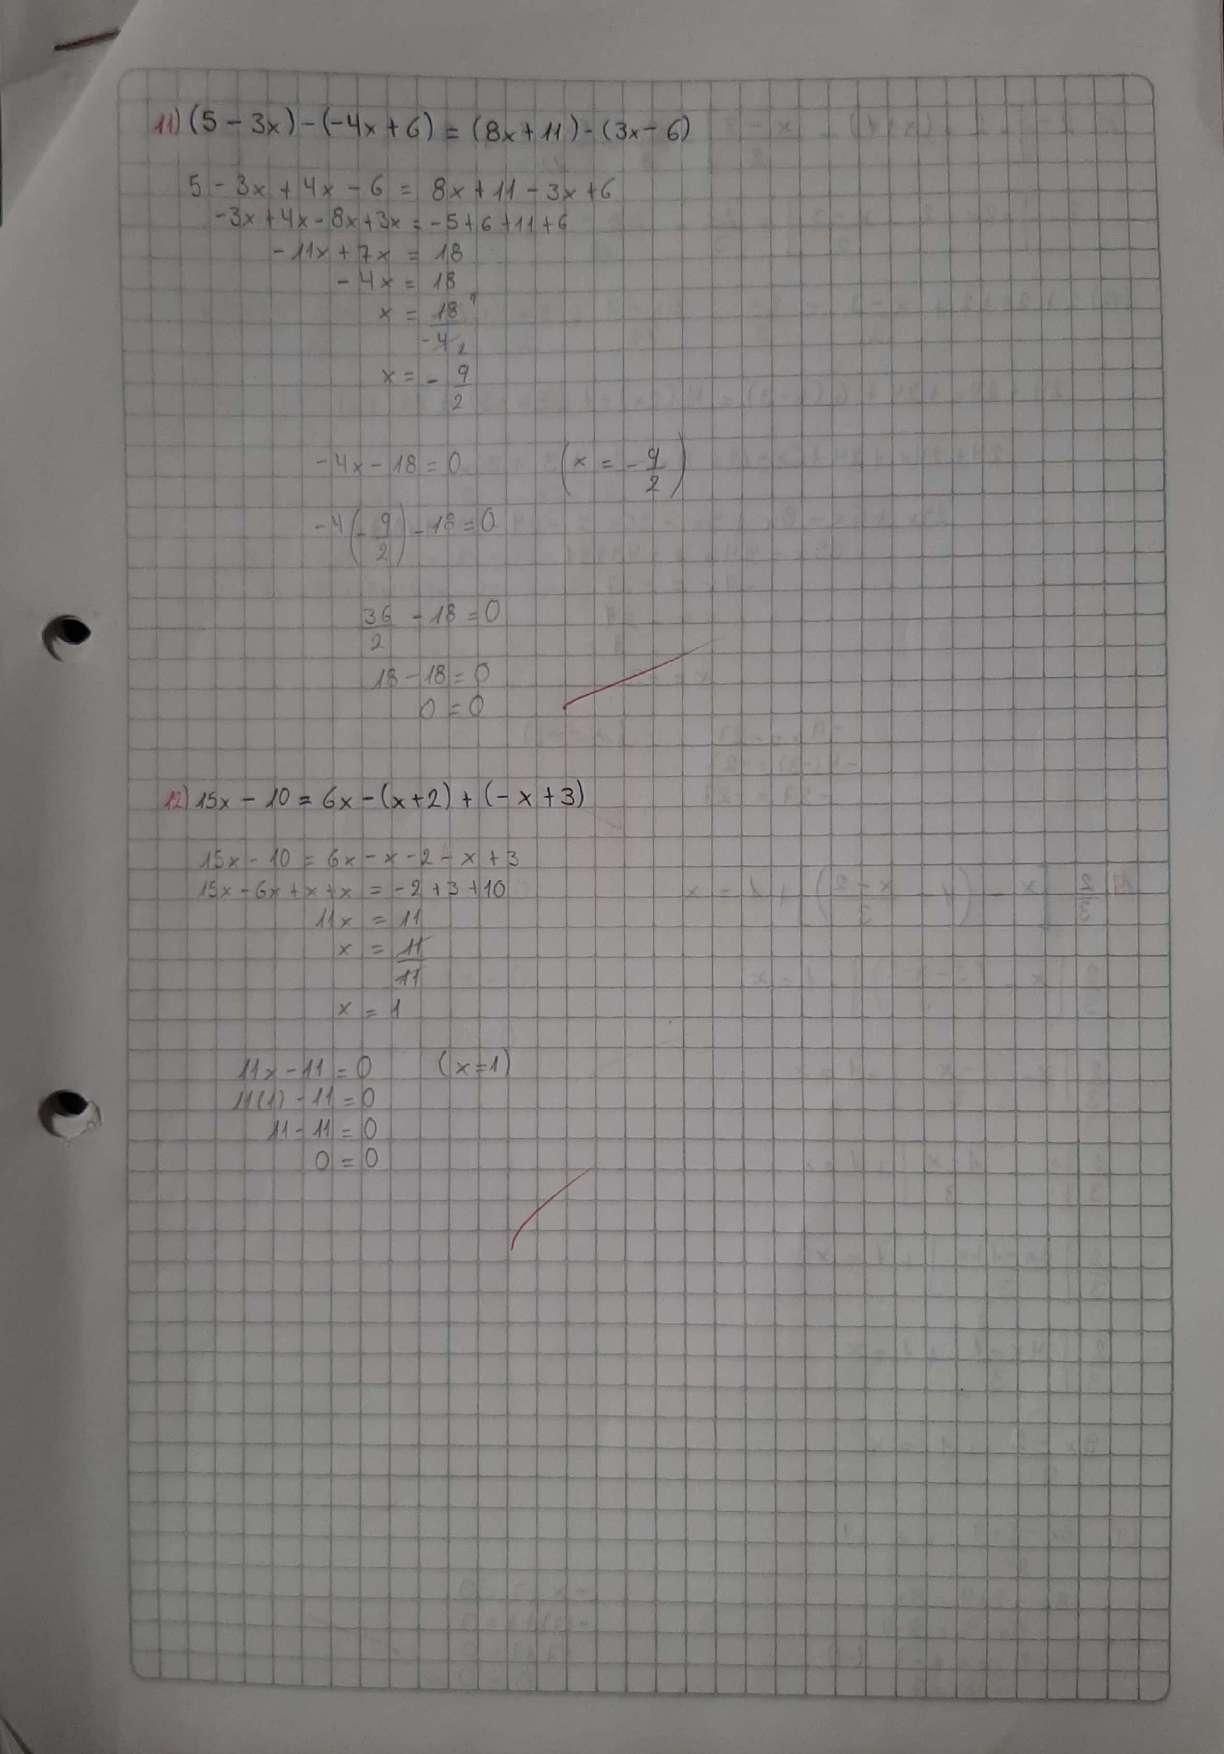 11) (5 - 3x) - (-4x + 6) = (8x + 11) - (3x - 6)
5 - 3x + 4x - 6 = 8x + 11 - 3x + 6
-3x + 4x - 8x + 3x = -5 + 6 + 11 + 6
-11x + 7x = 18
-4x = 18
x = 18/-4 9 2
x = - 9/2
-4x - 18 = 0 (x = - 9/2)
-4(- 9/2) - 18 = 0
36/2 - 18 = 0
18 - 18 = 0
0 = 0
12) 15x - 10 = 6x - (x + 2) + (-x + 3)
15x - 10 = 6x - x - 2 - x + 3
15x - 6x + x + x = -2 + 3 + 10
11x = 11
x = 11/11
x = 1
11x - 11 = 0 (x = 1)
11(1) - 11 = 0
11 - 11 = 0
0 = 0